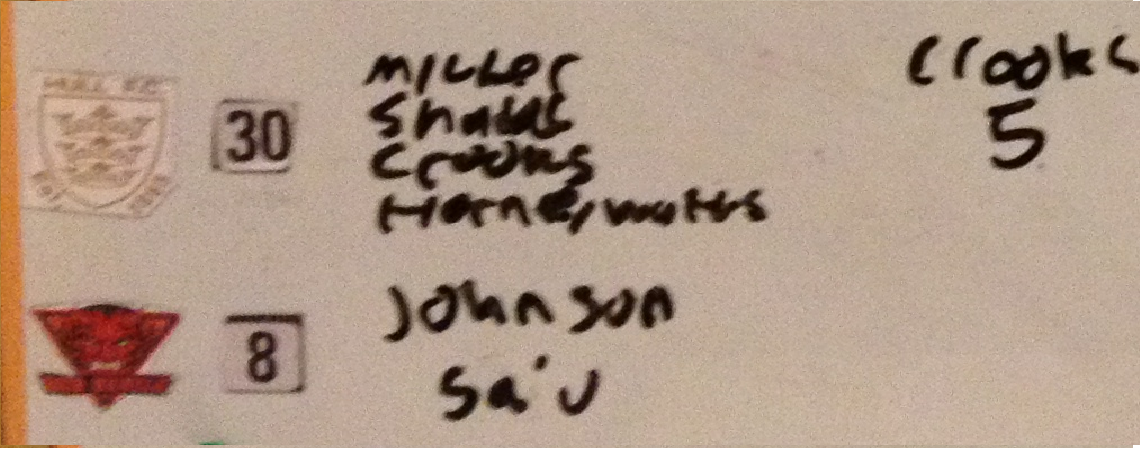 HULL F.C.
30
Miller
Shauls
Crooks
Horne, watts
Crooks
5
8
Johnson
Sa'u